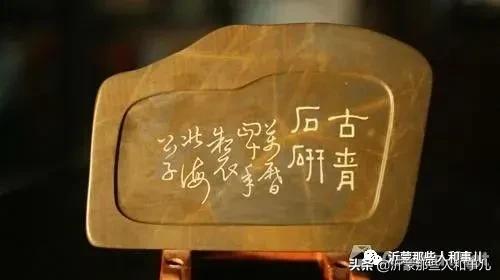 古青
石研
萬曆
年
北海
公子
沂蒙那些人和事儿
头条 @沂蒙那些人和事儿